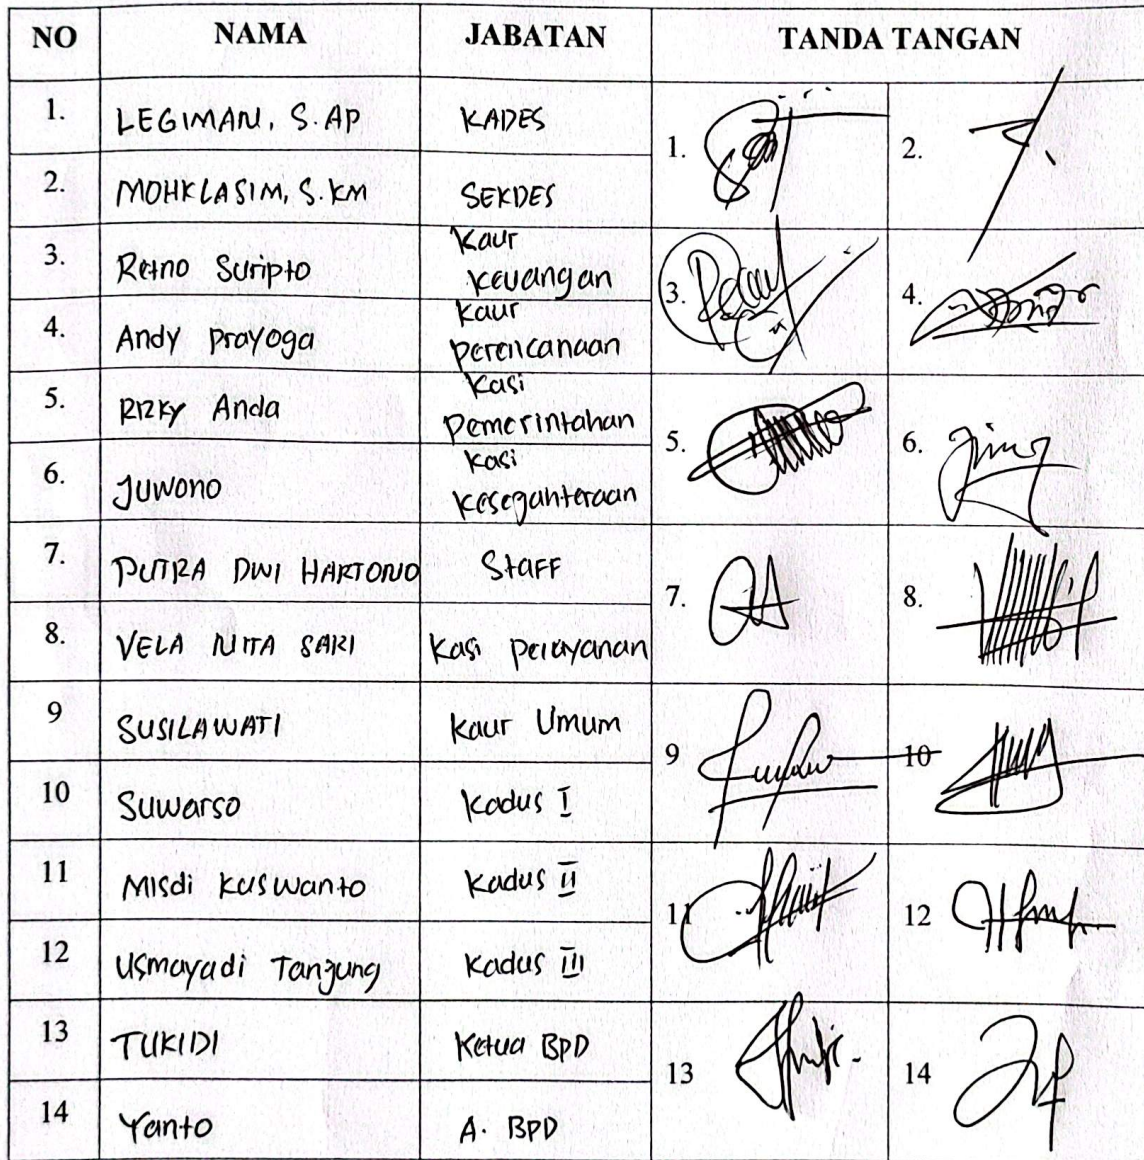 NO NAMA JABATAN TANDA TANGAN
1. LEGIMAN, S.AP KADES 1. 2.
2. MOHKLASIM, S.KM SEKDES
3. Retno Suripto Kaur Keuangan 3. 4.
4. Andy Prayoga Kaur Perencanaan
5. Rizky Anda Kasi Pemerintahan 5. 6.
6. Juwono Kasi Kesejahteraan
7. PUTRA DWI HARTONO Staff 7. 8.
8. VELA NITA SARI Kasi Pelayanan
9 SUSILAWATI Kaur Umum 9 10
10 Suwarso Kadus I
11 Misdi Kuswanto Kadus II 11 12
12 Usmayadi Tanjung Kadus III
13 TUKIDI Ketua BPD 13 14
14 Yanto A. BPD